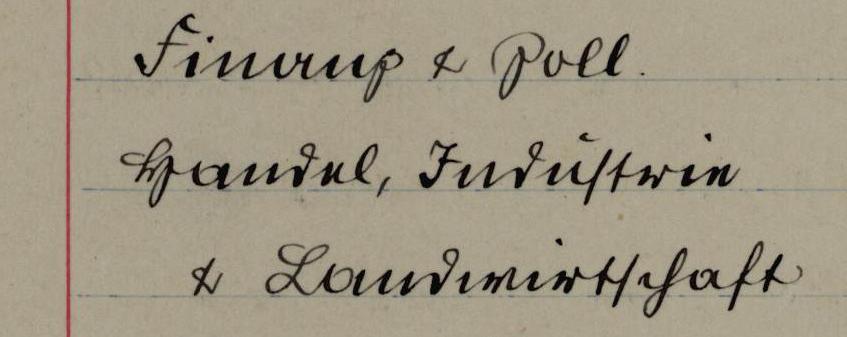 Finanz & Zoll.
Handel, Industrie
& Landwirtschaft